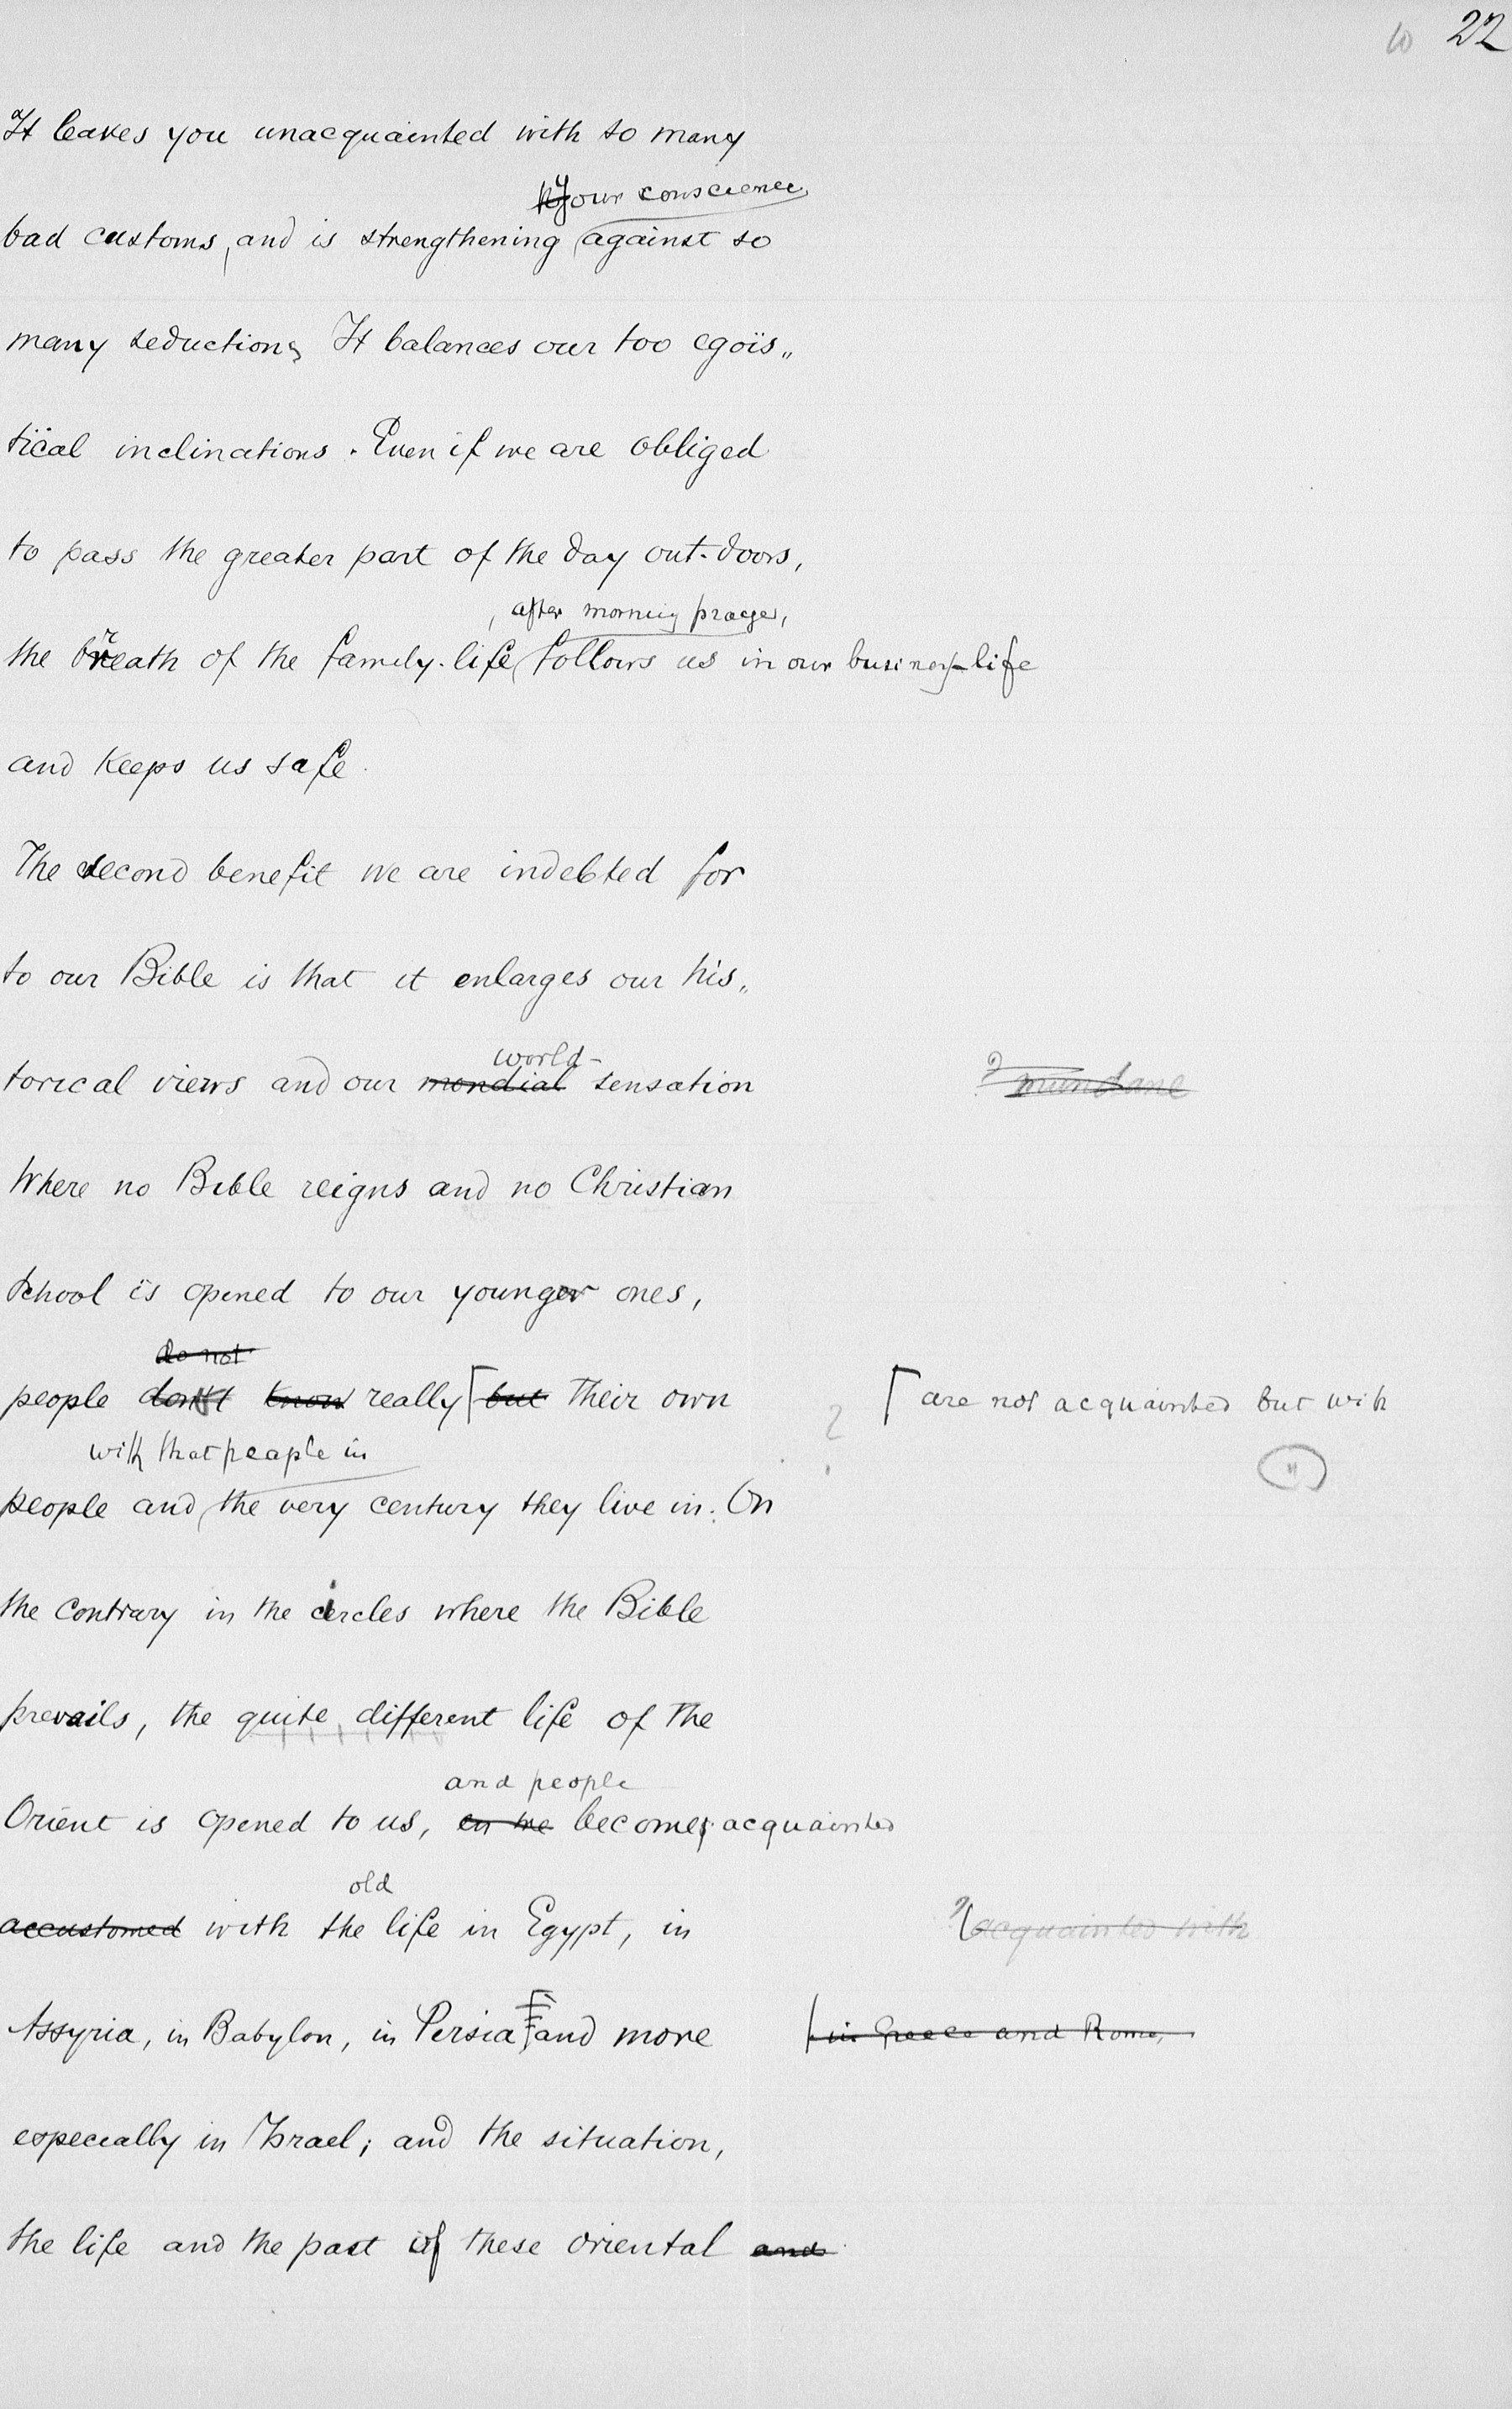 22
It leaves you unacquainted with so many
your conscience
bad customs, and is strengthening against so
many seductions. It balances our too egoïs„
tical inclinations. Even if we are obliged
to pass the greater part of the day out-doors,
, after morning prayer,
the breath of the family-life follows us in our business-life
and keeps us safe.
The second benefit we are indebted for
to our Bible is that it enlarges our his„
world-
torical views and our mondial sensation
? mundane
Where no Bible reigns and no Christian
School is opened to our younger ones,
do not
people don't know really but their own
are not acquainted but with
with that people in
people and the very century they live in. On
the contrary in the circles where the Bible
prevails, the quite different life of the
and people
Orient is opened to us, en we become acquainted
old
accustomed with the life in Egypt, in
? acquainted with
Assyria, in Babylon, in Persia and more
in Greece and Rome,
especially in Israel; and the situation,
the life and the past of these oriental and